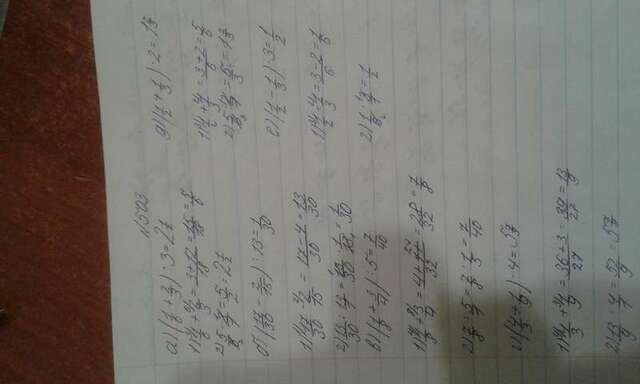 №503
а) (1/6 + 2/3) · 3 = 2 1/2
1) 1/6 + 2/3 = (3+12)/18 = 15/18 = 5/6
2) 5/6 · 3/1 = 5/2 = 2 1/2
б) (17/30 - 2/15) : 13 = 1/30
1) 17/30 - 2/15 = (17-4)/30 = 13/30
2) 13/30 : 13/1 = 13/30 · 1/13 = 1/30
в) (1/8 + 3/4) : 5 = 7/40
1) 1/8 + 3/4 = (4+24)/32 = 28/32 = 7/8
2) 7/8 : 5/1 = 7/8 · 1/5 = 7/40
1) 4/3 + 1/9 = (36+3)/27 = 39/27 = 13/9
2) 13/9 · 4/1 = 52/9 = 5 7/9
д) (1/2 + 1/3) · 2 = 1 2/3
1) 1/2 + 1/3 = (3+2)/6 = 5/6
е) (1/2 - 1/3) · 3 = 1/2
1) 1/2 - 1/3 = (3-2)/6 = 1/6
2) 1/6 · 3/1 = 1/2